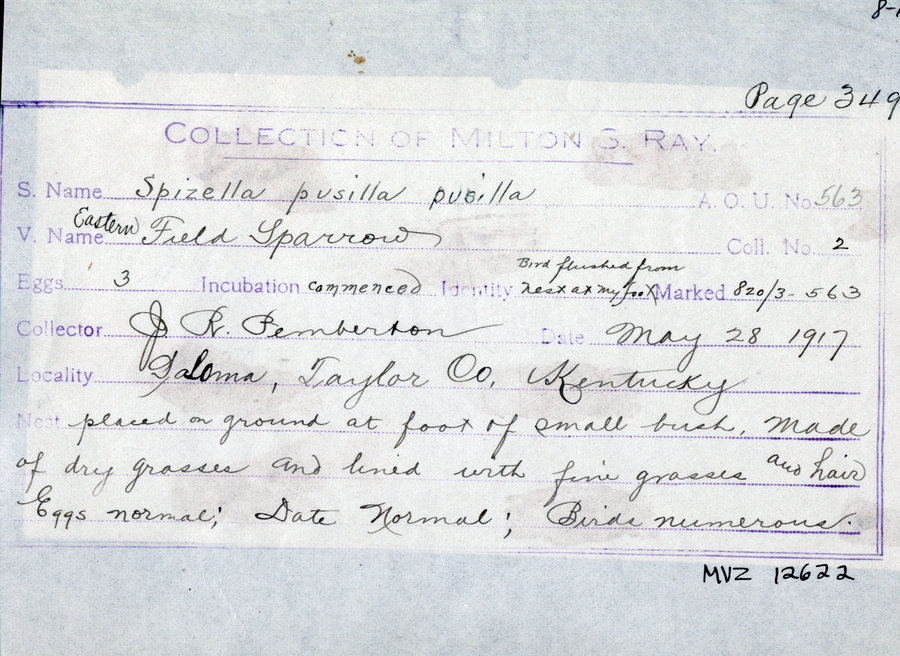 Page 349
COLLECTION OF MILTON S. RAY.
S. Name Spizella pusilla pusilla A. O. U. No 563
V. Name Eastern Field Sparrow Coll. No. 2
Eggs 3 Incubation commenced Identity Bird flushed from nest at my foot Marked 820/3-563
Collector J. R. Pemberton Date May 28 1917
Locality Saloma, Taylor Co, Kentucky
Nest placed on ground at foot of small bush. Made
of dry grasses and lined with fine grasses and hair
Eggs normal; Date Normal; Birds numerous.
MVZ 12622